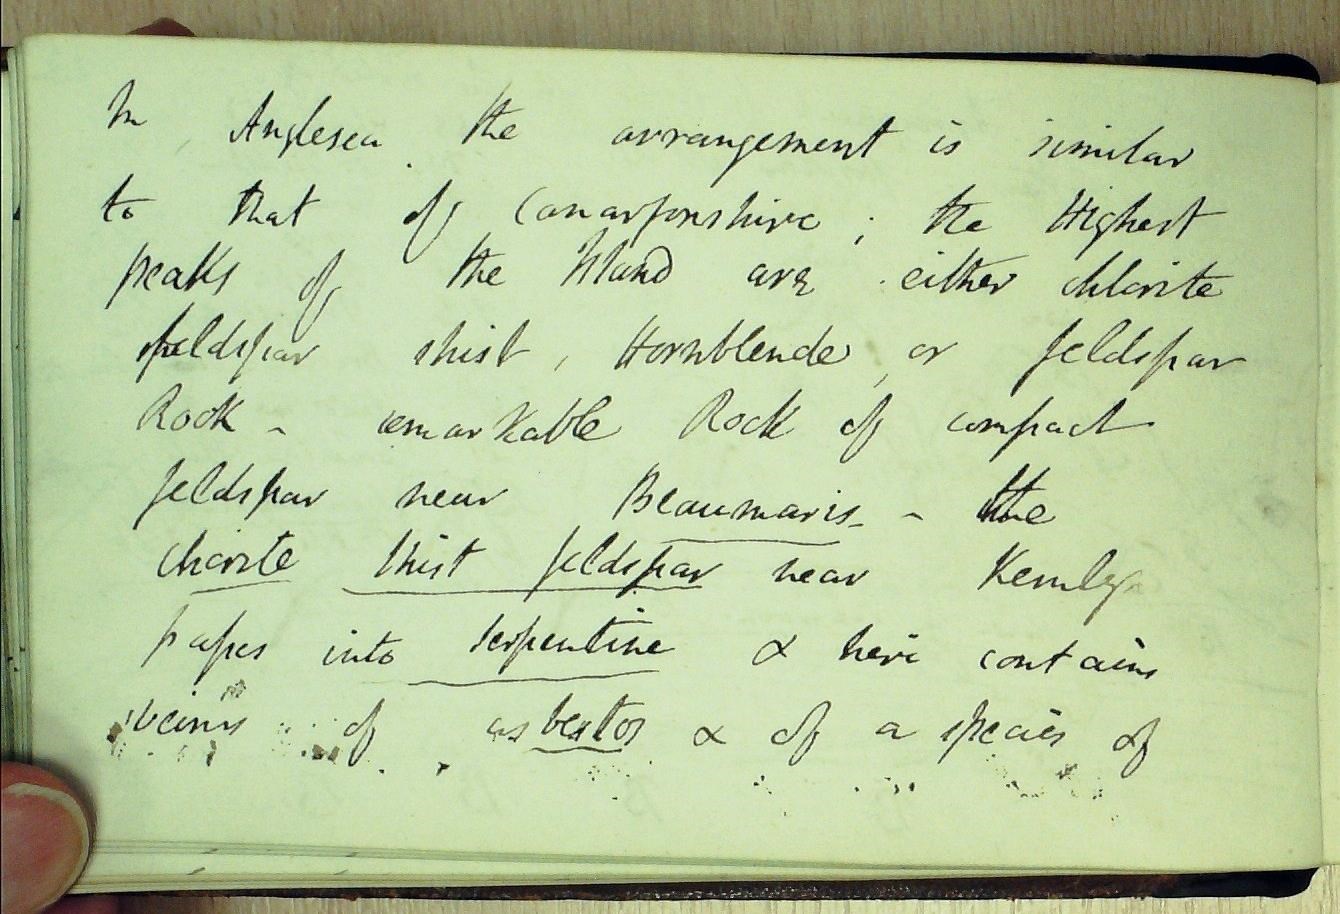 In Anglesea the arrangement is similar
to that of Canarfonshire; the Highest
peaks of the Island are either chlorite
feldspar shist, Hornblende, or feldspar
Rock - remarkable Rock of compact
feldspar near Beaumaris - the
chorite shist feldspar near Kemlyn
passes into serpentine & here contains
veins of asbestos & of a species of